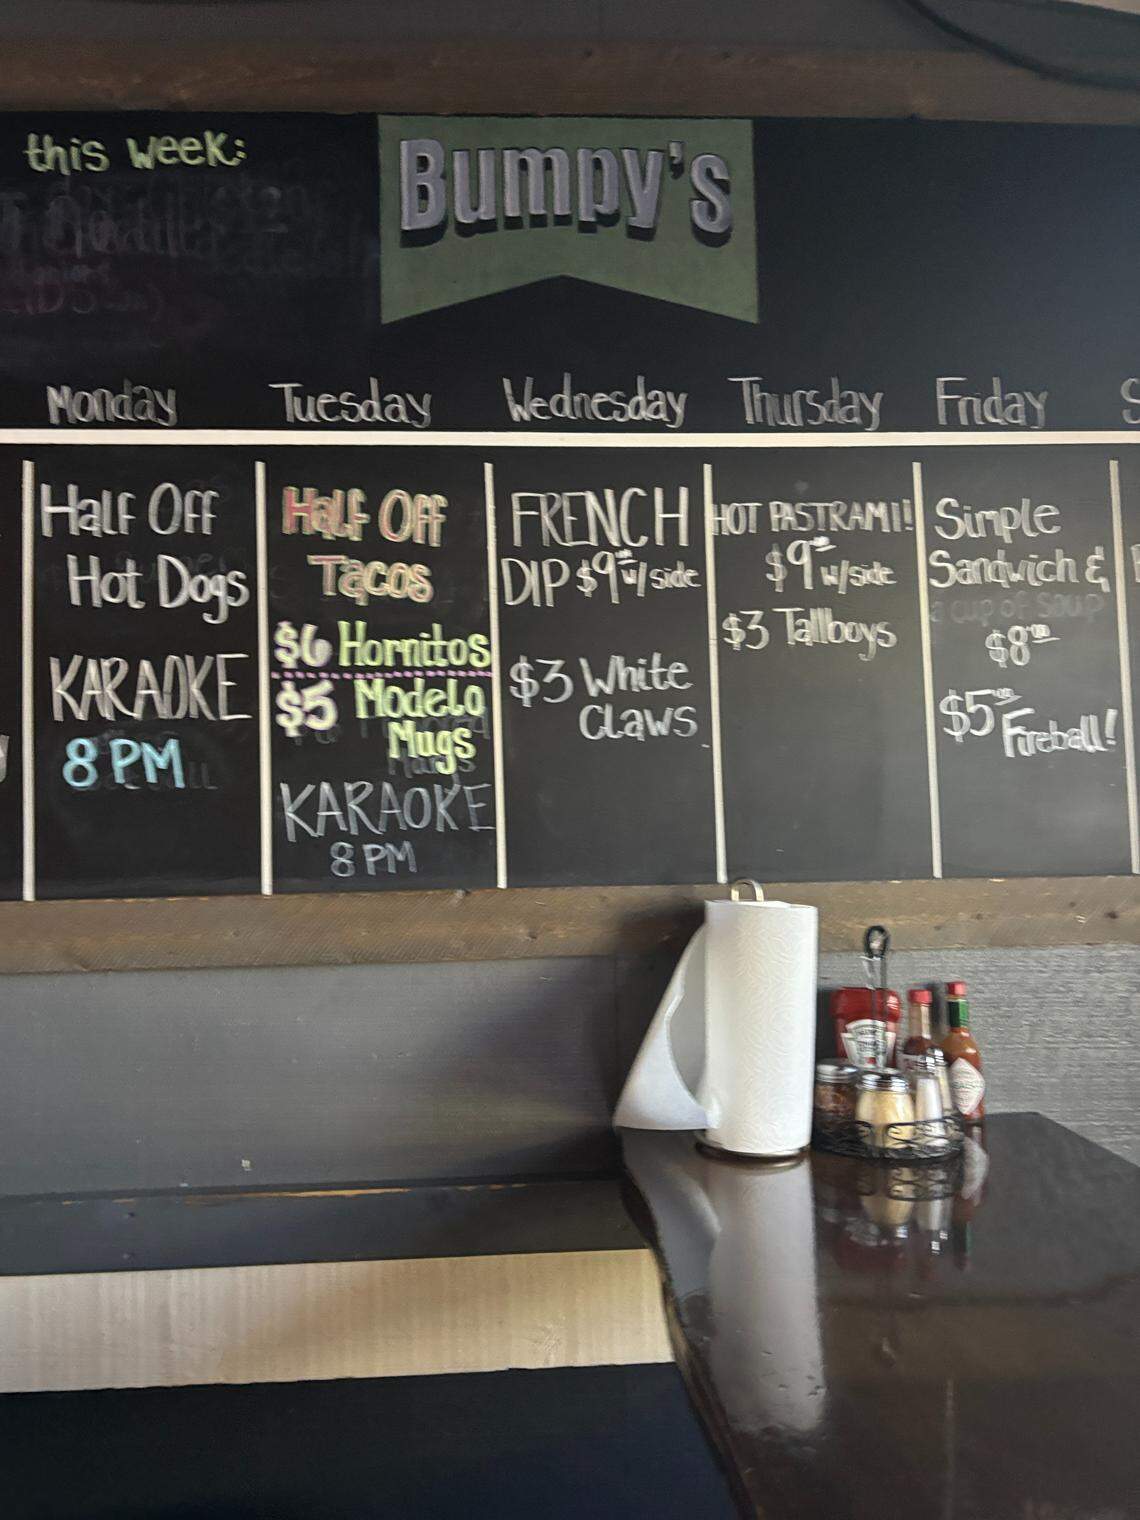 this week:
Bumpy's
Monday
Tuesday
Wednesday
Thursday
Friday
Half Off
Hot Dogs
KARAOKE
8 PM
Half Off
Tacos
$6 Hornitos
$5 Modelo
Mugs
KARAOKE
8 PM
FRENCH
DIP $9.00 w/ side
$3 White
Claws
HOT PASTRAMI!
$9.00 w/side
$3 Tallboys
Simple
Sandwich &
a cup of soup
$8.00
$5.00 Fireball!